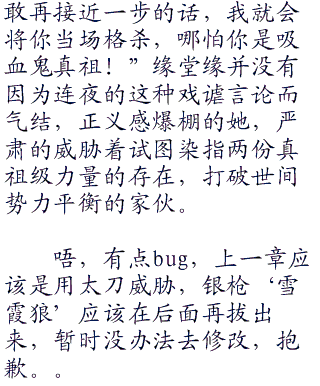 敢再接近一步的话，我就会
将你当场格杀，哪怕你是吸
血鬼真祖！”缘堂缘并没有
因为连夜的这种戏谑言论而
气结，正义感爆棚的她，严
肃的威胁着试图染指两份真
祖级力量的存在，打破世间
势力平衡的家伙。
唔，有点bug，上一章应
该是用太刀威胁，银枪‘雪
霞狼’应该在后面再拔出
来，暂时没办法去修改，抱
歉。。